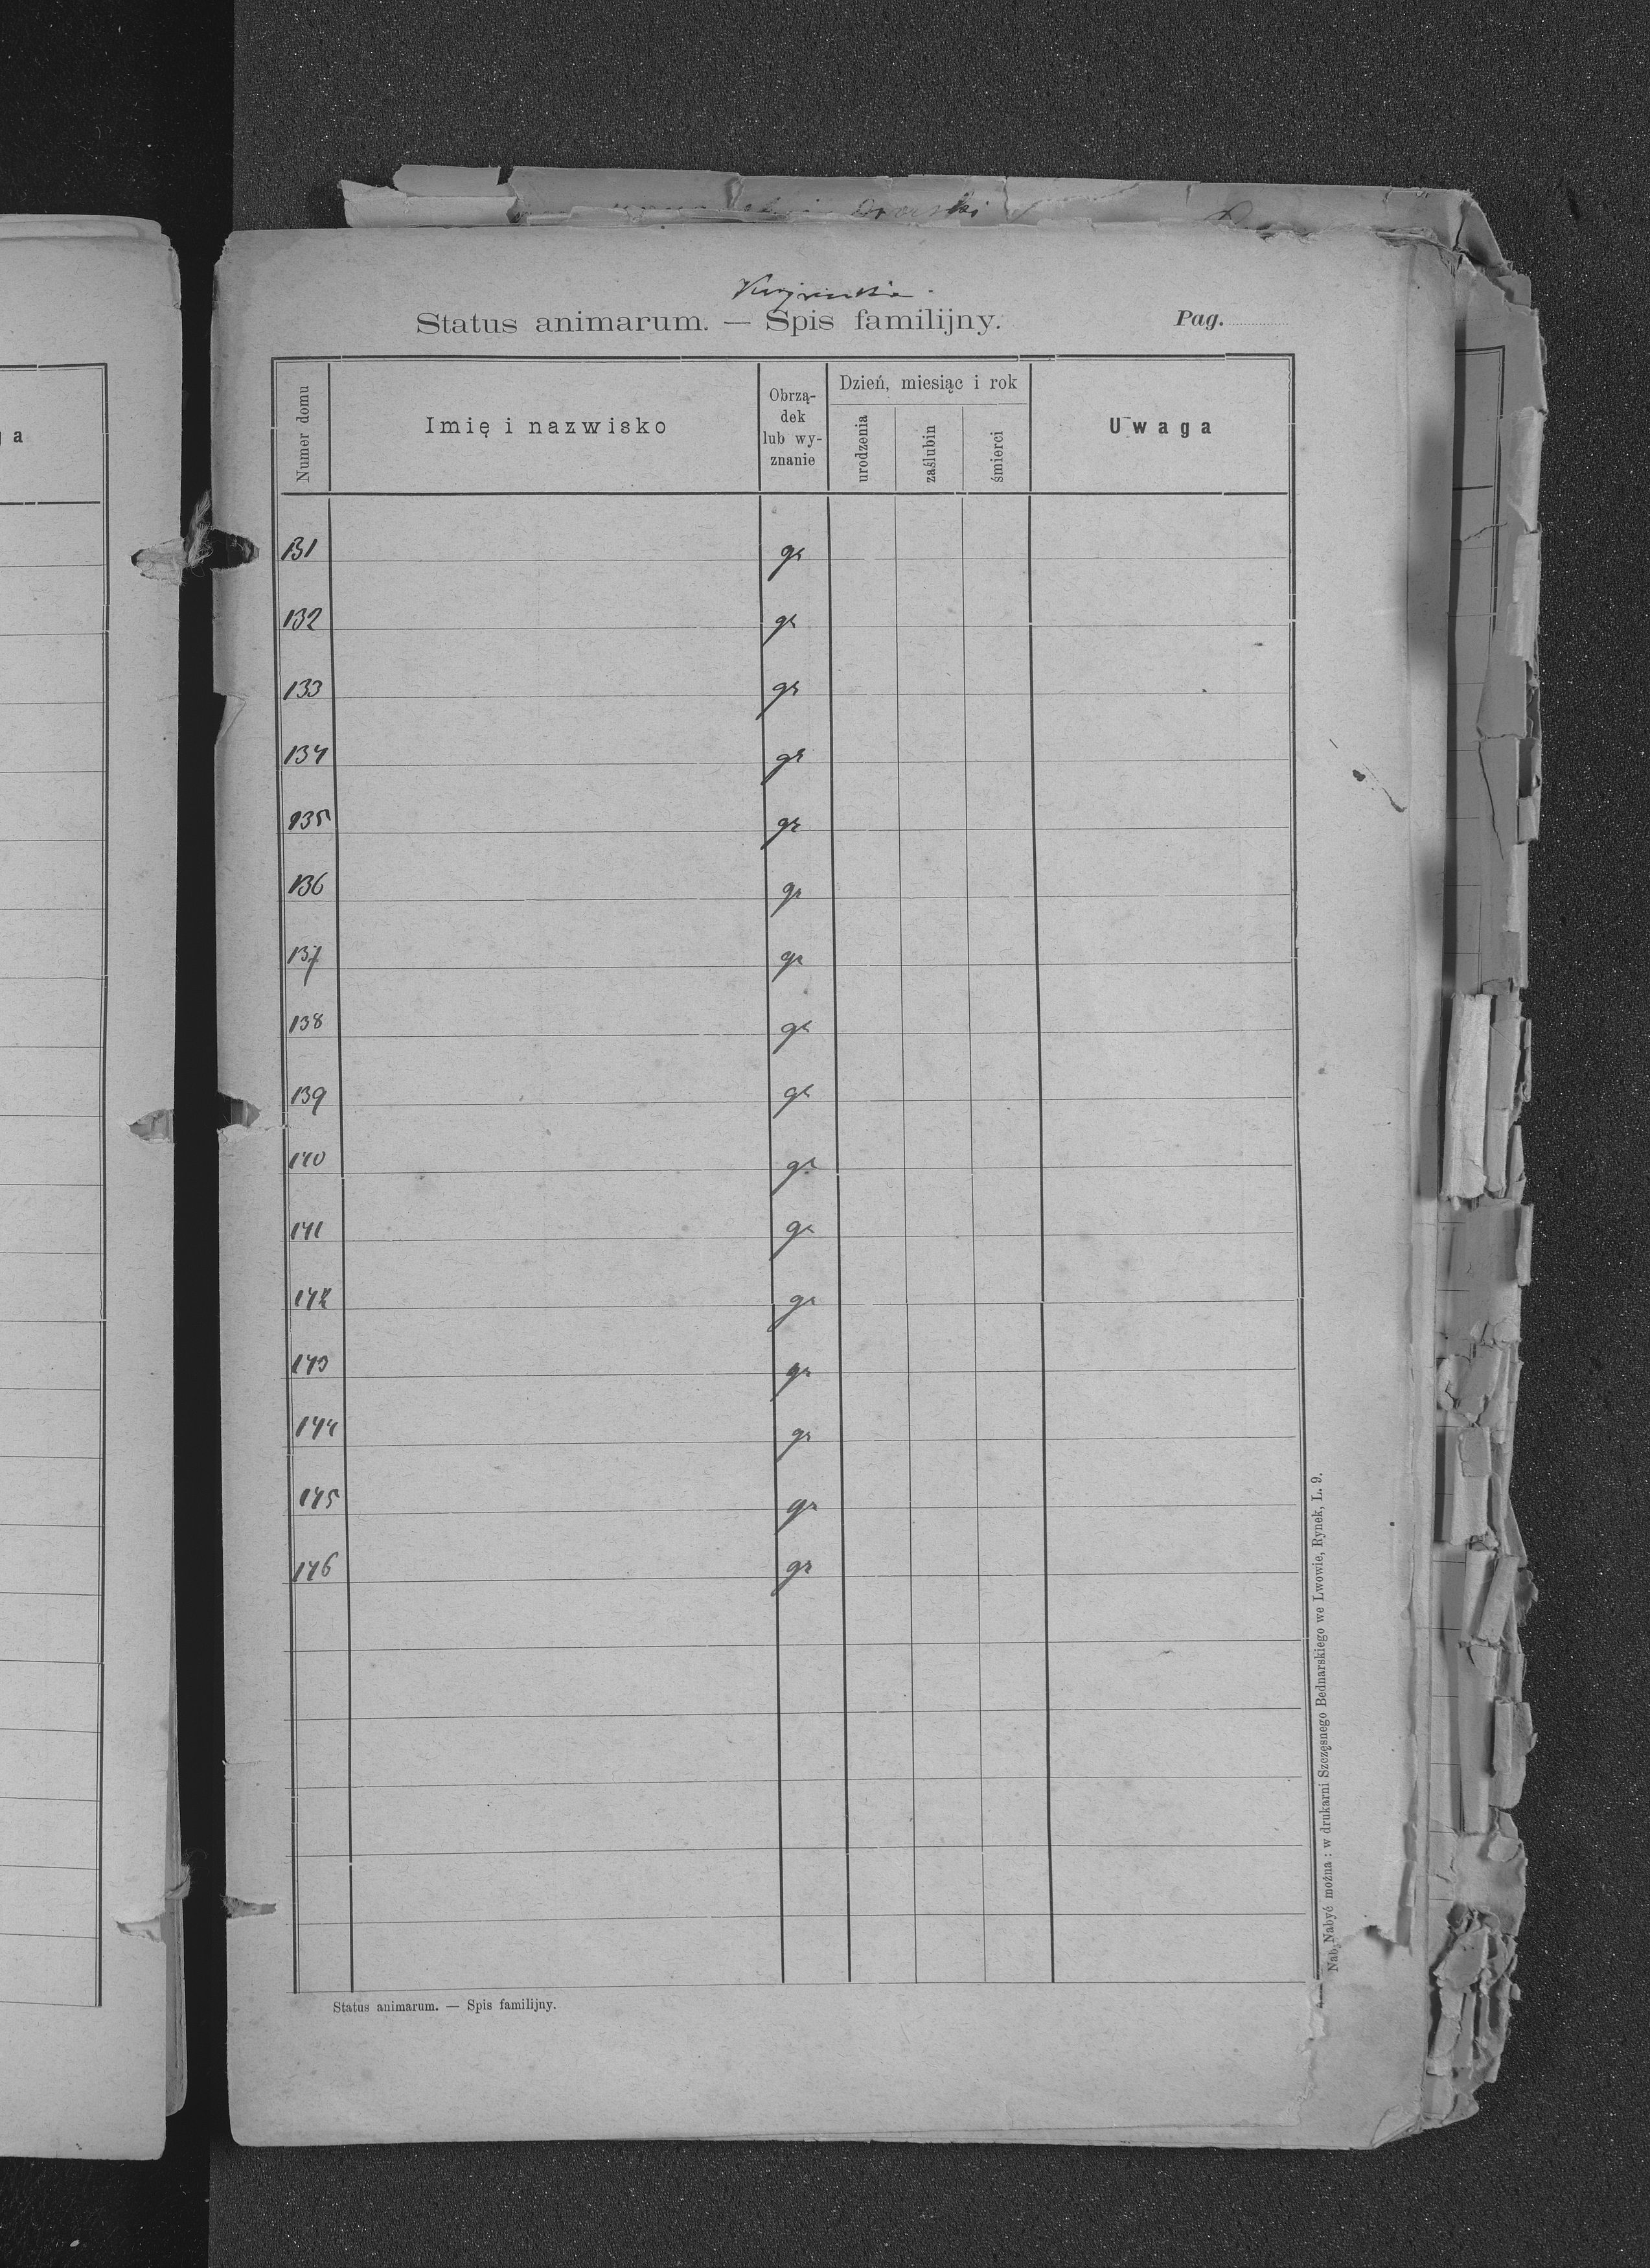 Status animarum. — Spis familijny.
Pag.
Numer domu
Imię i nazwisko
Obrzą-
dek
lub wy-
znanie
Dzień, miesiąc i rok
urodzenia
zaślubin
śmierci
Uwaga
a
131 gr
132 gr
133 gr
134 gr
135 gr
136 gr
137 gr
138 gr
139 gr
140 gr
141 gr
142 gr
143 gr
144 gr
145 gr
146 gr
Nab Nabyć można : w drukarni Szczęsnego Bednarskiego we Lwowie, Rynek, L. 9.
Status animarum. — Spis familijny.